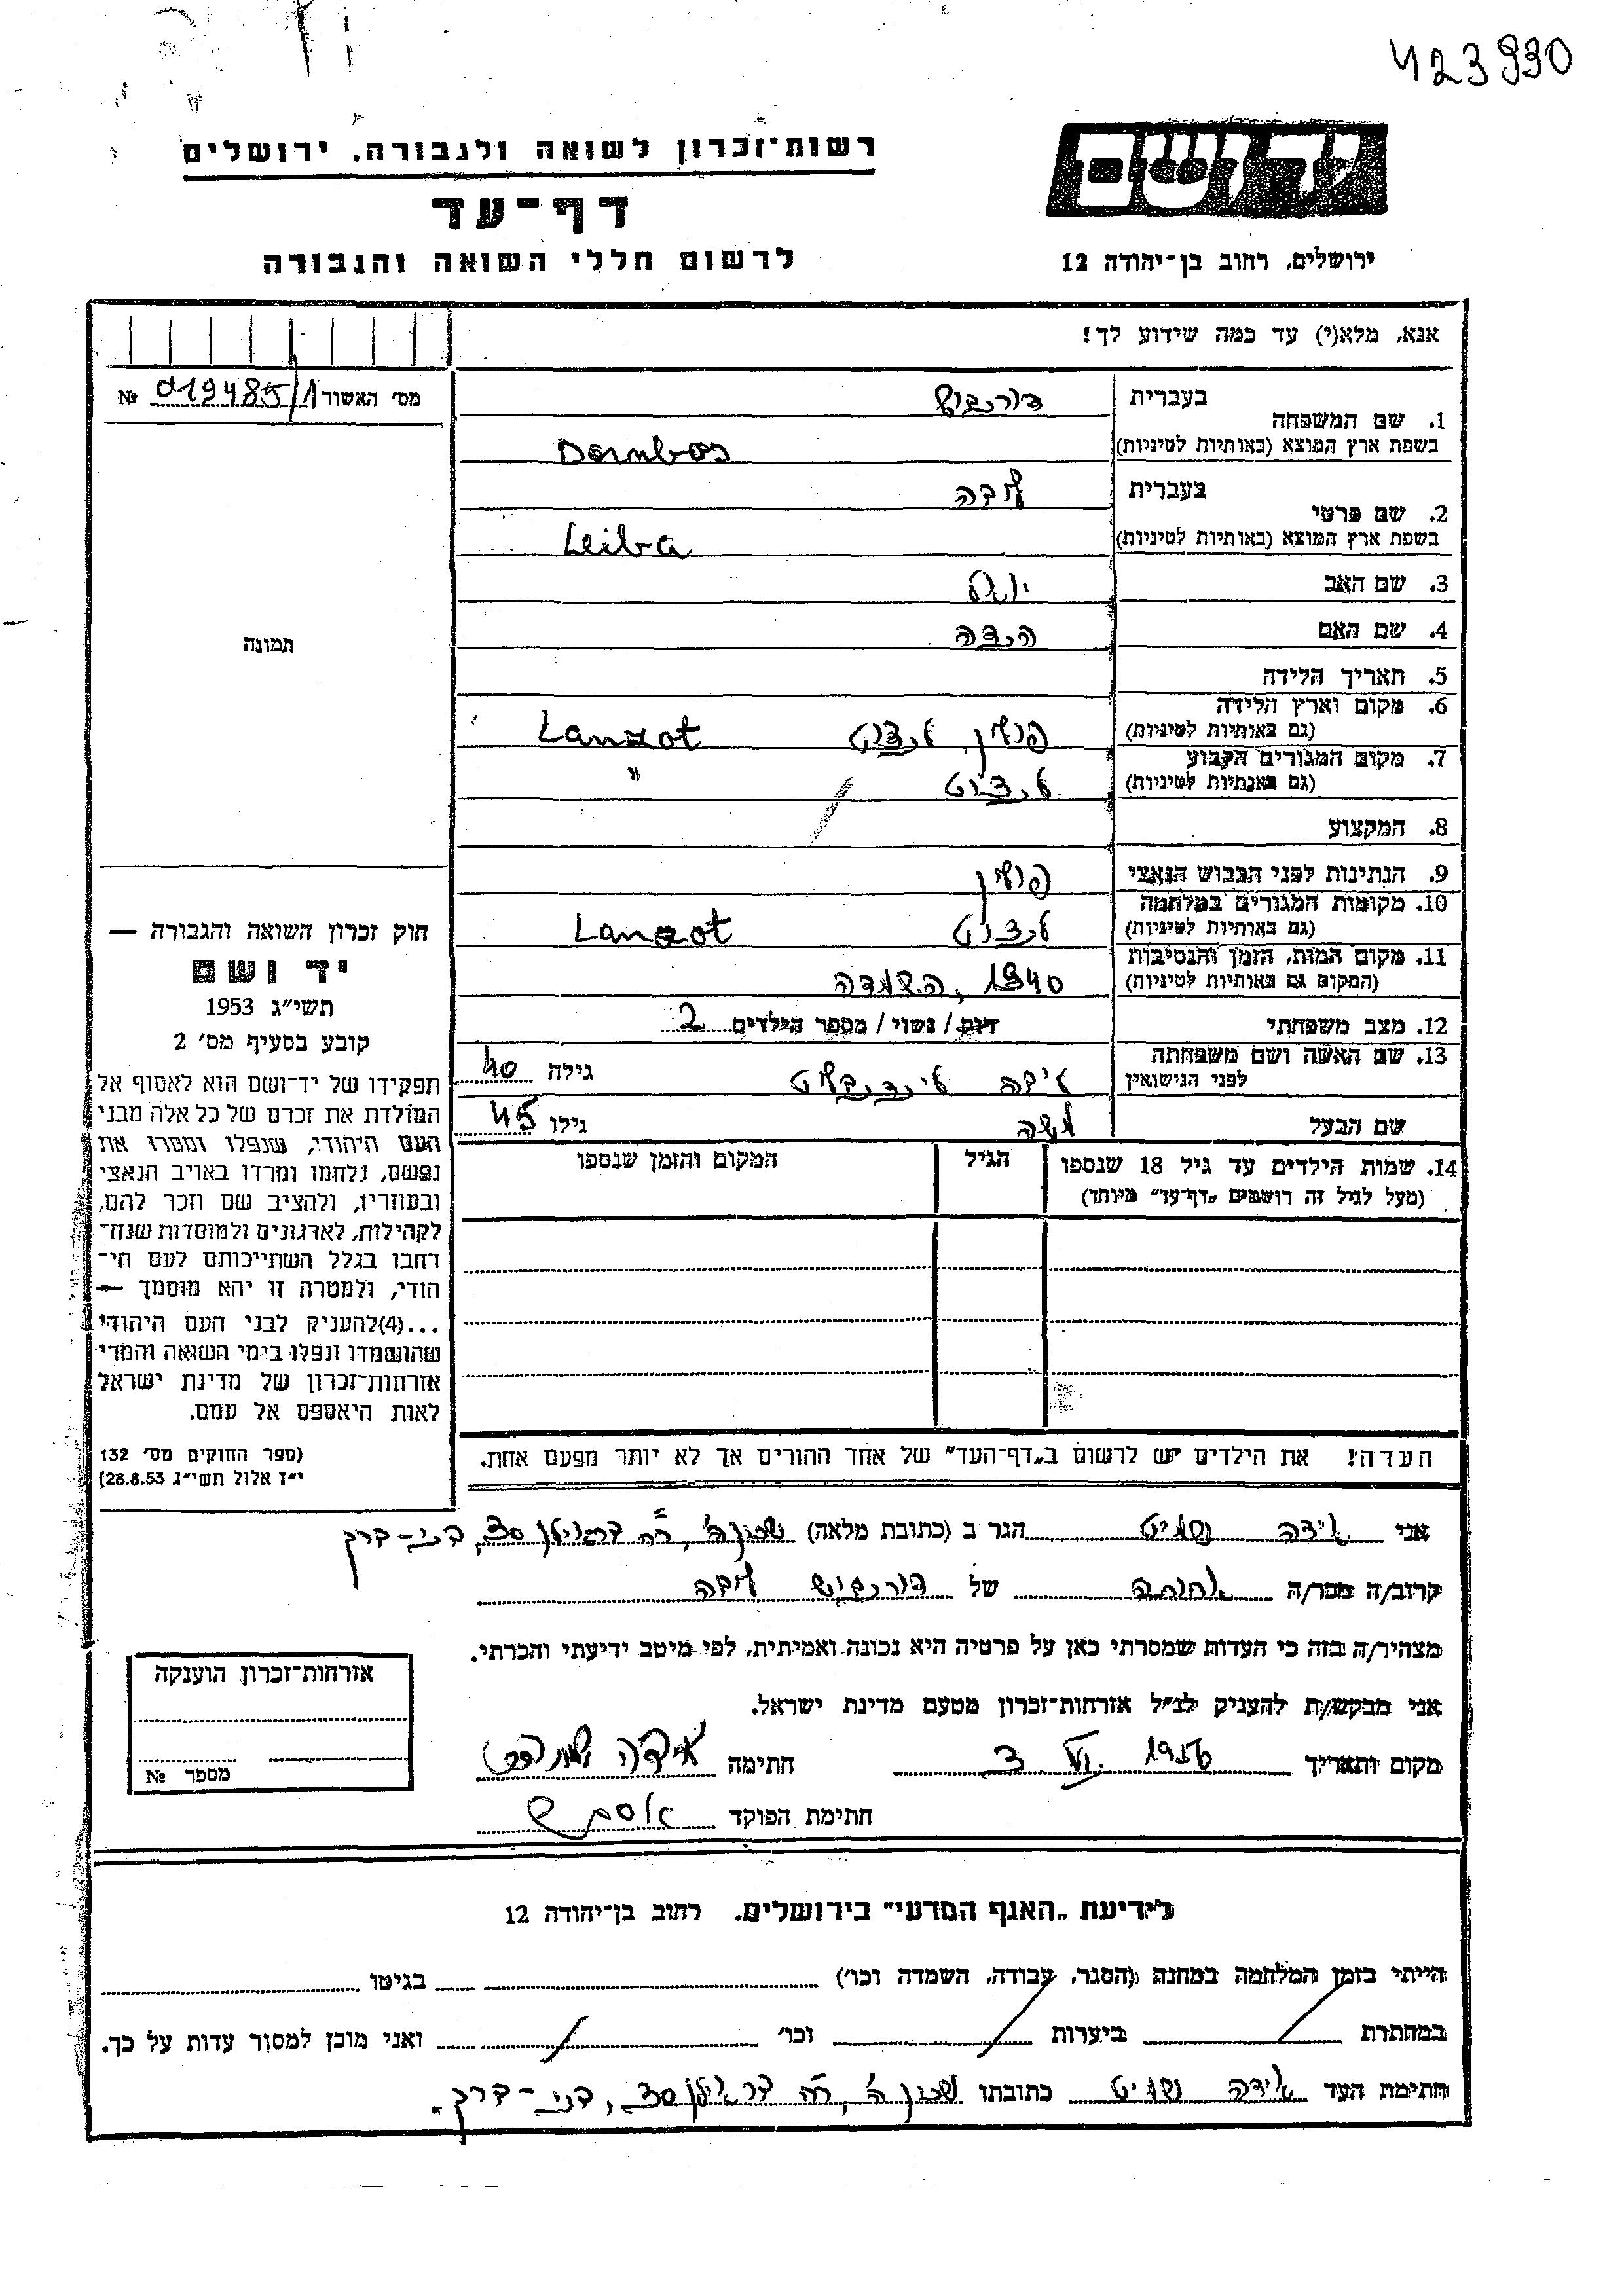 423990
רשות־זכרון לשואה ולגבורה, ירושלים
ידושם
דף־עד
לרשום חללי השואה והגבורה
ירושלים, רחוב בן־יהודה 12
אנא, מלא(י) עד כמה שידוע לך!
מס׳ האשור 019485/1 №
1. שם המשפחה
בעברית
בשפת ארץ המוצא (באותיות לטיניות) Dornbos
2. שם פרטי
בעברית
בשפת ארץ המוצא (באותיות לטיניות) Leiba
3. שם האב
4. שם האם הינדה
5. תאריך הלידה
6. מקום וארץ הלידה
(גם באותיות לטיניות) פולין, לנצוט Lanzot
7. מקום המגורים הקבוע
(גם באותיות לטיניות) לנצוט "
8. המקצוע
9. הנתינות לפני הכבוש הנאצי פולין
10. מקומות המגורים במלחמה
(גם באותיות לטיניות) לנצוט Lanzot
11. מקום המות, הזמן והנסיבות
(המקום גם באותיות לטיניות) 1940, השמדה
12. מצב משפחתי רווק / נשוי / מספר הילדים 2
13. שם האשה ושם משפחתה
לפני הנישואין
גילה 40
שם הבעל משה גילו 45
14. שמות הילדים עד גיל 18 שנספו
(מעל לגיל זה רושמים „דף־עד” מיוחד)
הגיל
המקום והזמן שנספו
תמונה
חוק זכרון השואה והגבורה —
יד ושם
תשי״ג 1953
קובע בסעיף מס׳ 2
תפקידו של יד־ושם הוא לאסוף אל
המולדת את זכרם של כל אלה מבני
העם היהודי, שנפלו ומסרו את
נפשם, נלחמו ומרדו באויב הנאצי
ובעוזריו, ולהציב שם וזכר להם,
לקהילות, לארגונים ולמוסדות שנח־
רבו בגלל השתייכותם לעם הי־
הודי, ולמטרה זו יהא מוסמך —
...(4)להעניק לבני העם היהודי
שהושמדו ונפלו בימי השואה והמרי
אזרחות־זכרון של מדינת ישראל
לאות היאספם אל עמם.
(ספר החוקים מס׳ 132
י״ז אלול תשי״ג 28.8.53)
הערה! את הילדים יש לרשום ב„דף־העד” של אחד ההורים אך לא יותר מפעם אחת.
אני הגר ב (כתובת מלאה) שכון ה׳, 30
קרוב/ה מכר/ה של
מצהיר/ה בזה כי העדות שמסרתי כאן על פרטיה היא נכונה ואמיתית, לפי מיטב ידיעתי והכרתי.
אני מבקש/ת להעניק לנ״ל אזרחות־זכרון מטעם מדינת ישראל.
מקום ותאריך 3 VI. 1956 חתימה
חתימת הפוקד
אזרחות־זכרון הוענקה
מספר №
לידיעת „האגף המדעי” בירושלים, רחוב בן־יהודה 12
הייתי בזמן המלחמה במחנה (הסגר, עבודה, השמדה וכו׳) בגיטו
במחתרת ביערות וכו׳ ואני מוכן למסור עדות על כך.
חתימת העד כתובתו שכון ה׳, 30